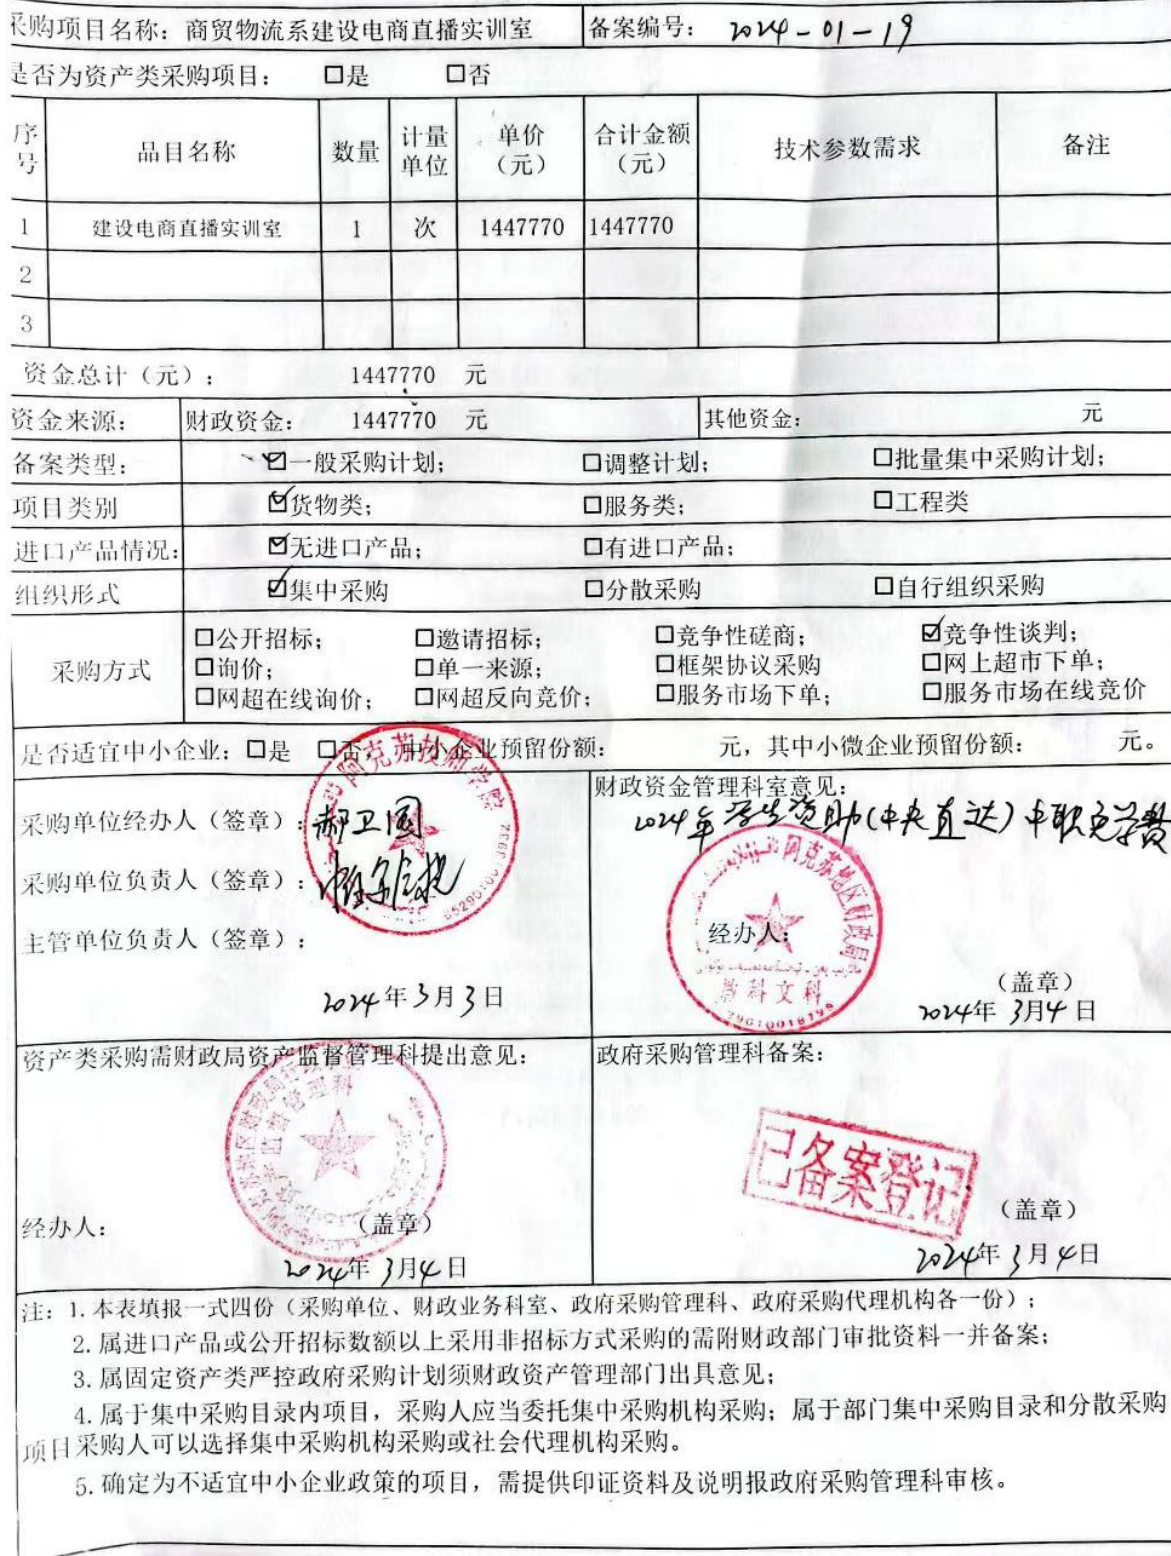 采购项目名称：商贸物流系建设电商直播实训室 备案编号： 2024-01-19
是否为资产类采购项目： □是 □否
序号 品目名称 数量 计量单位 单价（元） 合计金额（元） 技术参数需求 备注
1 建设电商直播实训室 1 次 1447770 1447770
2
3
资金总计（元）： 1447770 元
资金来源： 财政资金： 1447770 元 其他资金： 元
备案类型： ☑一般采购计划； □调整计划； □批量集中采购计划；
项目类别 ☑货物类； □服务类； □工程类
进口产品情况： ☑无进口产品； □有进口产品；
组织形式 ☑集中采购 □分散采购 □自行组织采购
采购方式
□公开招标； □邀请招标； □竞争性磋商； ☑竞争性谈判；
□询价； □单一来源； □框架协议采购 □网上超市下单；
□网超在线询价； □网超反向竞价； □服务市场下单； □服务市场在线竞价
是否适宜中小企业：□是 □否 中小企业预留份额： 元，其中小微企业预留份额： 元。
采购单位经办人（签章）：郝卫国
采购单位负责人（签章）：
主管单位负责人（签章）：
2024年3月3日
阿克苏技师学院
财政资金管理科室意见：
2024年学生资助(中央直达)中职免学费
阿克苏地区财政局
经办人：
教科文科
（盖章）
2024年 3月4日
资产类采购需财政局资产监督管理科提出意见：
经办人： （盖章）
2024年3月4日
政府采购管理科备案：
已备案登记
（盖章）
2024年3月4日
注：1.本表填报一式四份（采购单位、财政业务科室、政府采购管理科、政府采购代理机构各一份）；
2.属进口产品或公开招标数额以上采用非招标方式采购的需附财政部门审批资料一并备案；
3.属固定资产类严控政府采购计划须财政资产管理部门出具意见；
4.属于集中采购目录内项目，采购人应当委托集中采购机构采购；属于部门集中采购目录和分散采购
项目采购人可以选择集中采购机构采购或社会代理机构采购。
5.确定为不适宜中小企业政策的项目，需提供印证资料及说明报政府采购管理科审核。